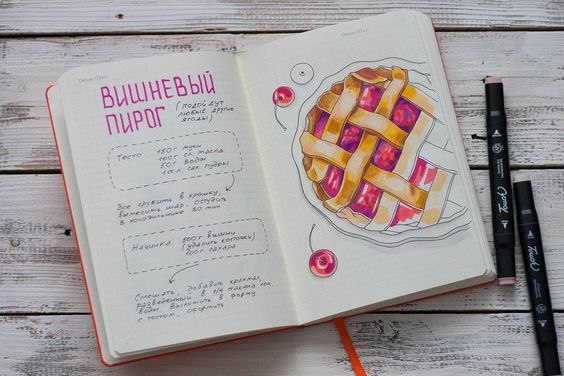 Datum / Date:
ВИШНЕВЫЙ
ПИРОГ
(подойдут
любые другие
ягоды)
Тесто 150г муки
100г сл. масла
50г воды
1 ст.л сах. пудры
Все срубить в крошку,
вымесить шар, остудить
в холодильнике 30 мин
Начинка 500г вишни
(удалить косточки)
100г сахара
Смешать, добавить крахмал,
разведенный в 1/4 стакана хол.
воды. Выложить в форму
с тестом, оформить
Datum / Date:
Touch
Touch